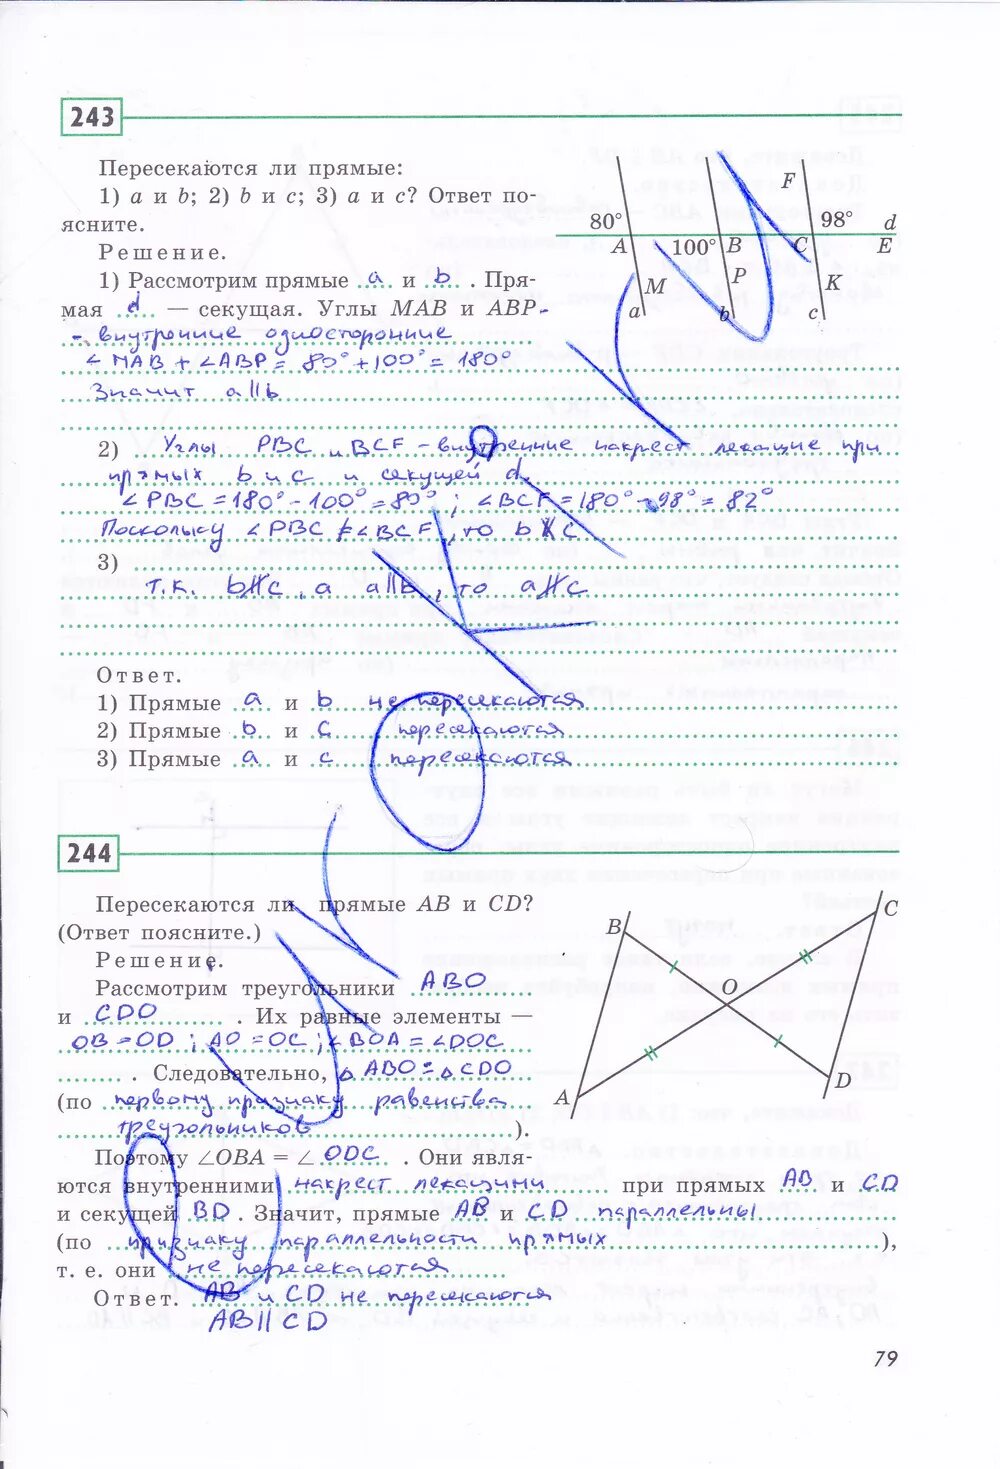 243
Пересекаются ли прямые:
1) a и b; 2) b и c; 3) a и c? Ответ по-
ясните.
Решение.
1) Рассмотрим прямые a и b. Пря-
мая d — секущая. Углы MAB и ABP -
- внутренние односторонние
∠MAB + ∠ABP = 80° + 100° = 180°
Значит a||b
80°
A
100°
B
F
98°
C
d
E
M
P
K
a
b
c
2) Углы PBC и BCF - внутренние накрест лежащие при
прямых b и c и секущей d.
∠PBC = 180° - 100° = 80° ; ∠BCF = 180° - 98° = 82°
Поскольку ∠PBC ≠ ∠BCF, то b ∦ c
3)
т.к. b ∦ c, а a||b, то a ∦ c
Ответ.
1) Прямые a и b не пересекаются
2) Прямые b и c пересекаются
3) Прямые a и c пересекаются
244
Пересекаются ли прямые AB и CD?
(Ответ поясните.)
Решение.
Рассмотрим треугольники ABO
и CDO. Их равные элементы —
OB = OD ; AO = OC ; ∠BOA = ∠DOC
. Следовательно, △ABO = △CDO
(по первому признаку равенства
треугольников ).
Поэтому ∠OBA = ∠ ODC. Они явля-
ются внутренними накрест лежащими при прямых AB и CD
и секущей BD. Значит, прямые AB и CD параллельны
(по признаку параллельности прямых ),
т. е. они не пересекаются
Ответ. AB и CD не пересекаются
AB || CD
B
C
O
A
D
79